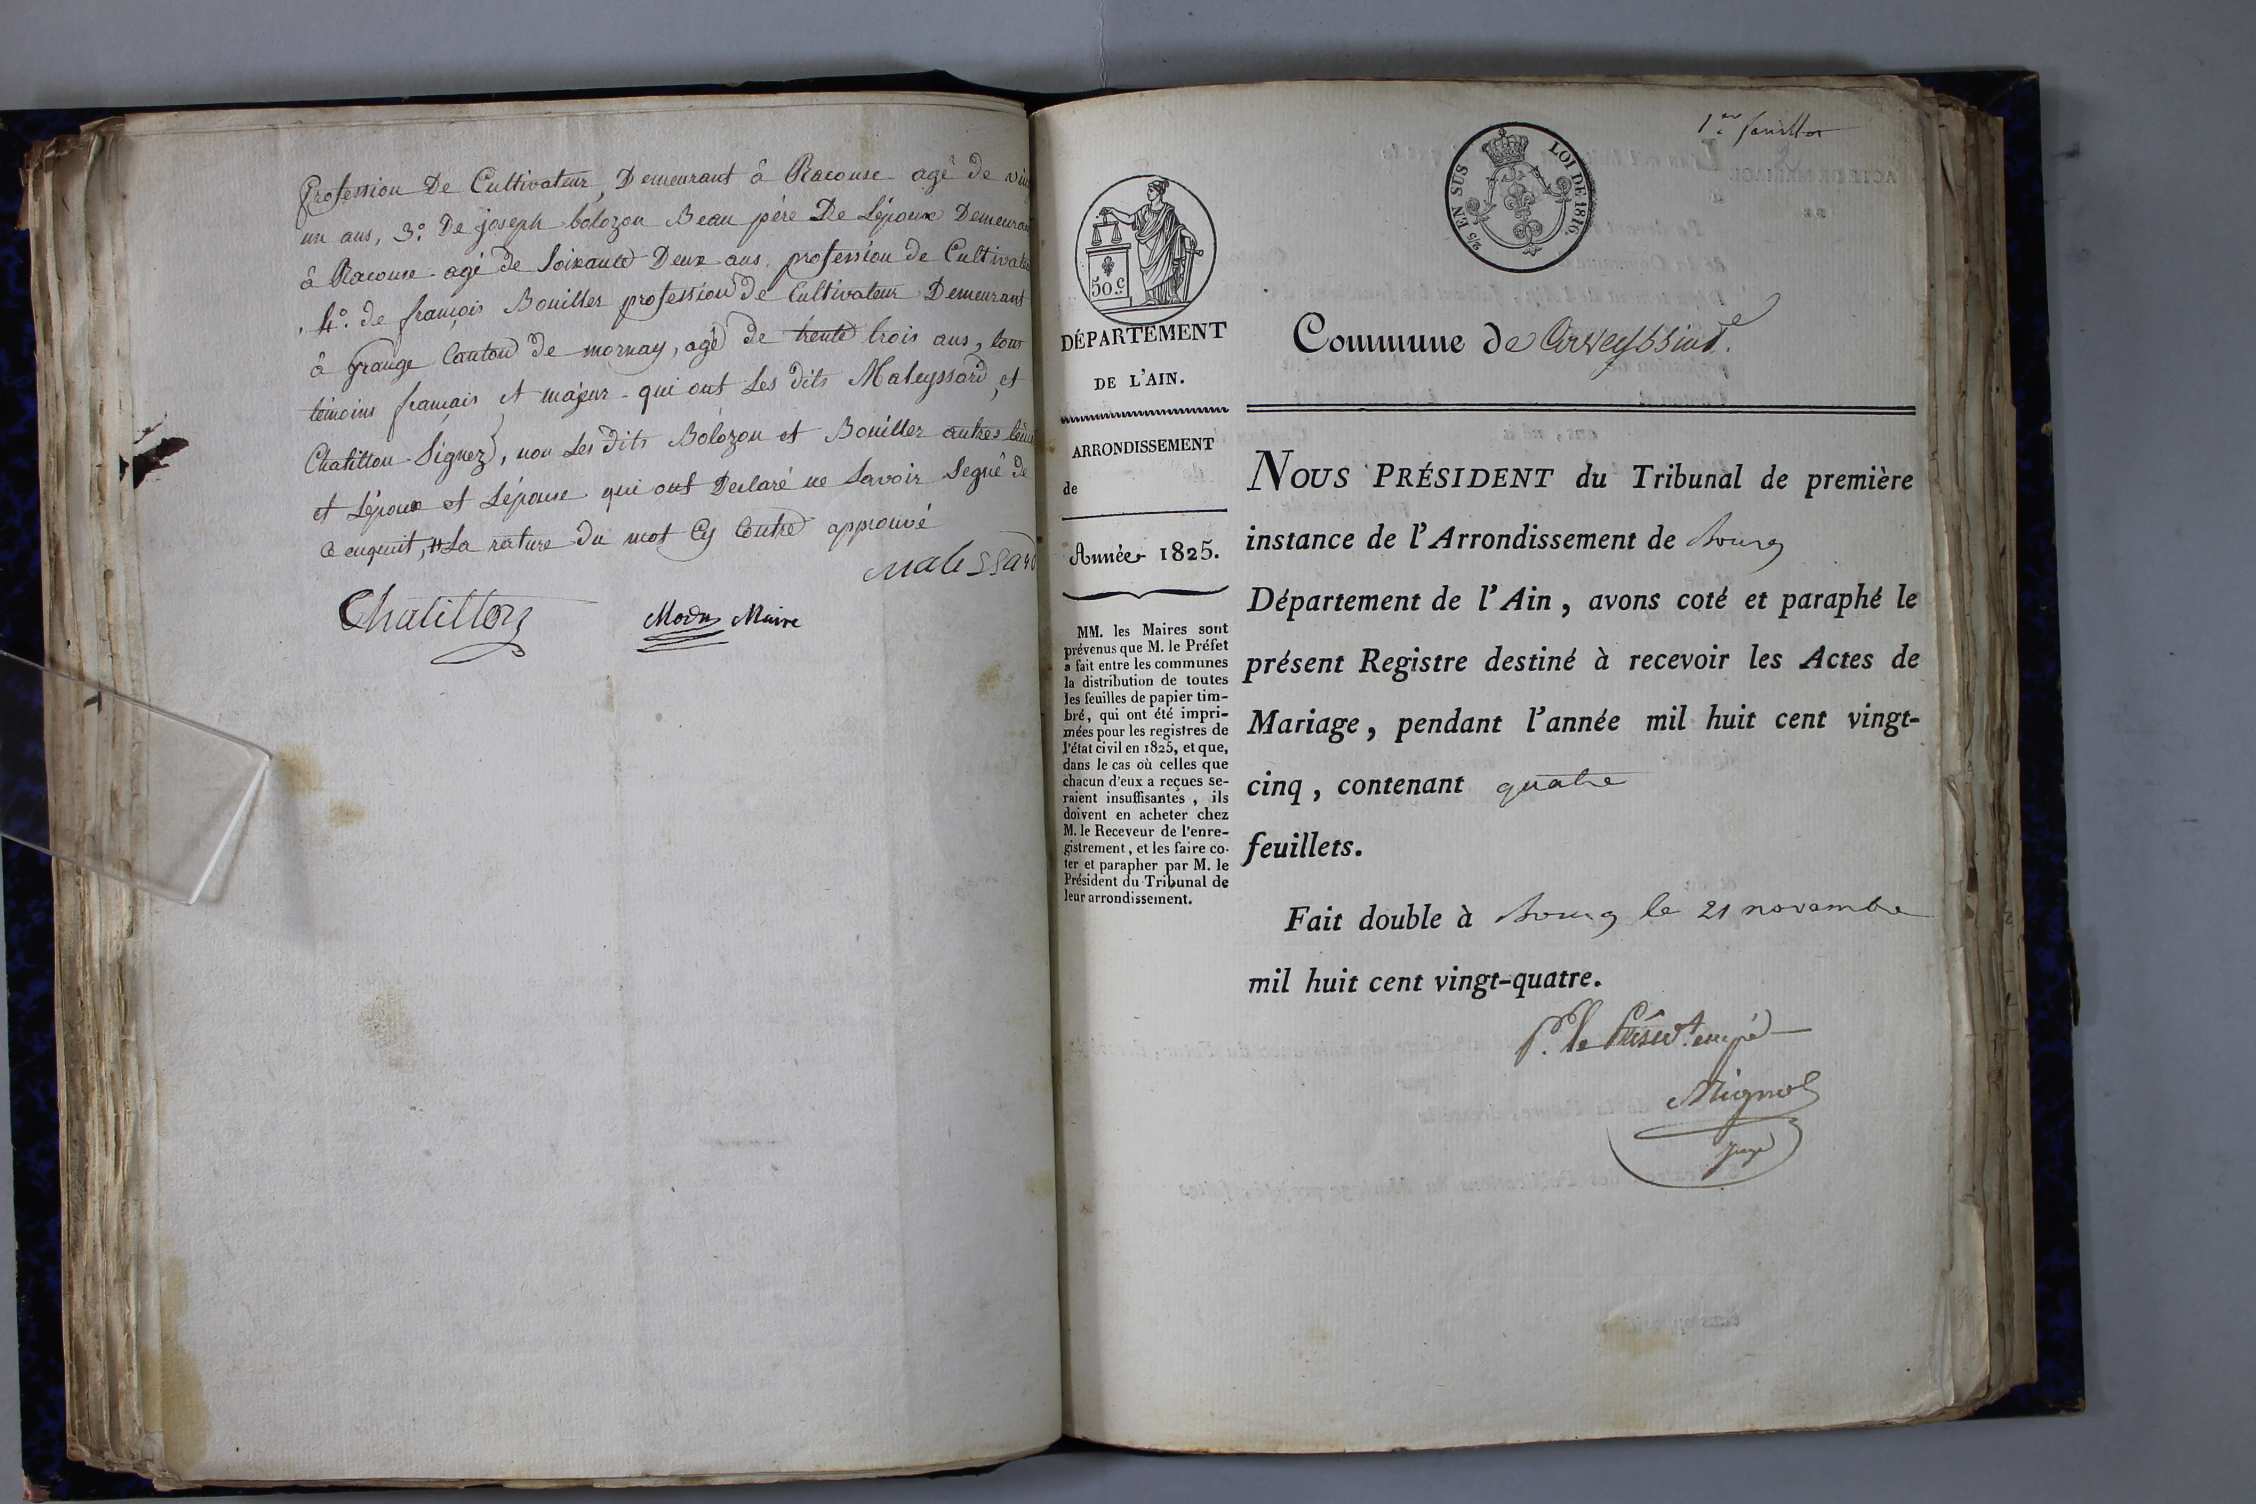 Profession De Cultivateur, Demeurant â Racouse agé de
un ans, 3.º De joseph bolozon Beau pére De Lépoux
â Racouse agé de Soixante Deux ans, profession de
4.º de françois Bouiller profession de Cultivateur Demeurant
â grange Canton de mornay, agé de trente trois ans, tous
témoins français et majeur - qui ont Les dits Maleyssard, et
Chatillon Signez, non Les dits Bolozon et Bouiller autres
et Lépoux et Lépouse qui ont Declaré ne Savoir Segné de
La rature du mot Cy Contre approuvé
Malessard
Chatillon
Maire
1.er feuillet
50 c
2/5 EN SUS
LOI DE 1816.
DÉPARTEMENT
DE L'AIN.
ARRONDISSEMENT
de
Année 1825.
MM. les Maires sont
prévenus que M. le Préfet
a fait entre les communes
la distribution de toutes
les feuilles de papier tim-
bré, qui ont été impri-
mées pour les registres de
l'état civil en 1825, et que,
dans le cas où celles que
chacun d'eux a reçues se-
raient insuffisantes, ils
doivent en acheter chez
M. le Receveur de l'enre-
gistrement, et les faire co-
ter et parapher par M. le
Président du Tribunal de
leur arrondissement.
Commune de
NOUS PRÉSIDENT du Tribunal de première
instance de l'Arrondissement de Bourg
Département de l'Ain, avons coté et paraphé le
présent Registre destiné à recevoir les Actes de
Mariage, pendant l'année mil huit cent vingt-
cinq, contenant quatre
feuillets.
Fait double à Bourg le 21 novembre
mil huit cent vingt-quatre.
P. le Présid.t empé
Mignot
juge